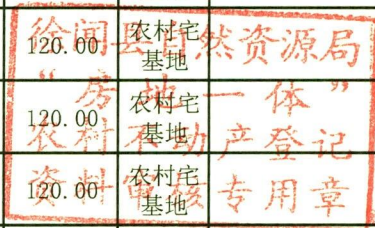 120.00 农村宅
基地
120.00 农村宅
基地
120.00 农村宅
基地
徐闻县自然资源局
“房地一体”
农村不动产登记
资料审核专用章